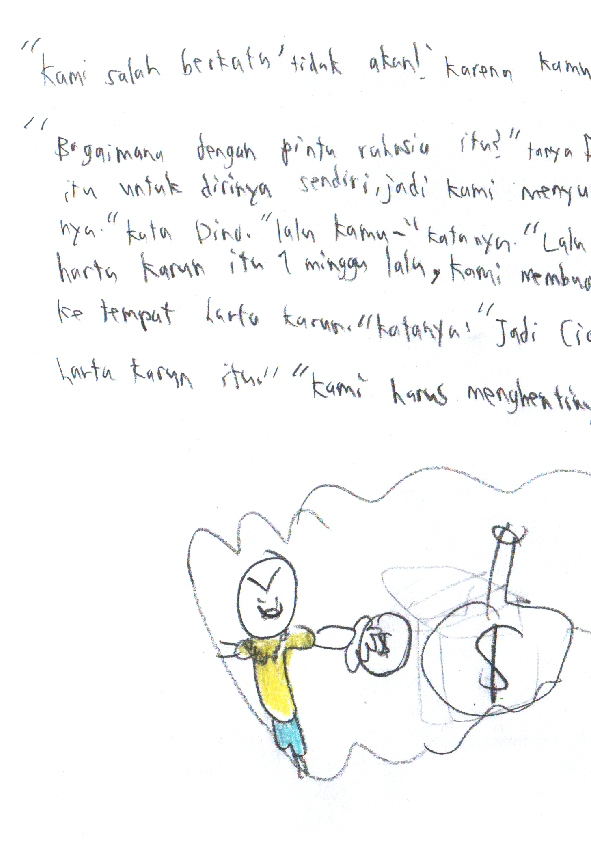 "Kami salah berkata 'tidak akan!' karena kamu
"Bagaimana dengan pintu rahasia itu?" tanya
itu untuk dirinya sendiri, jadi kami
nya." kata Dino. "lalu kamu-" katanya. "Lalu
harta karun itu 1 minggu lalu, kami
ke tempat harta karun." katanya. "Jadi
harta karun itu." "Kami harus
$